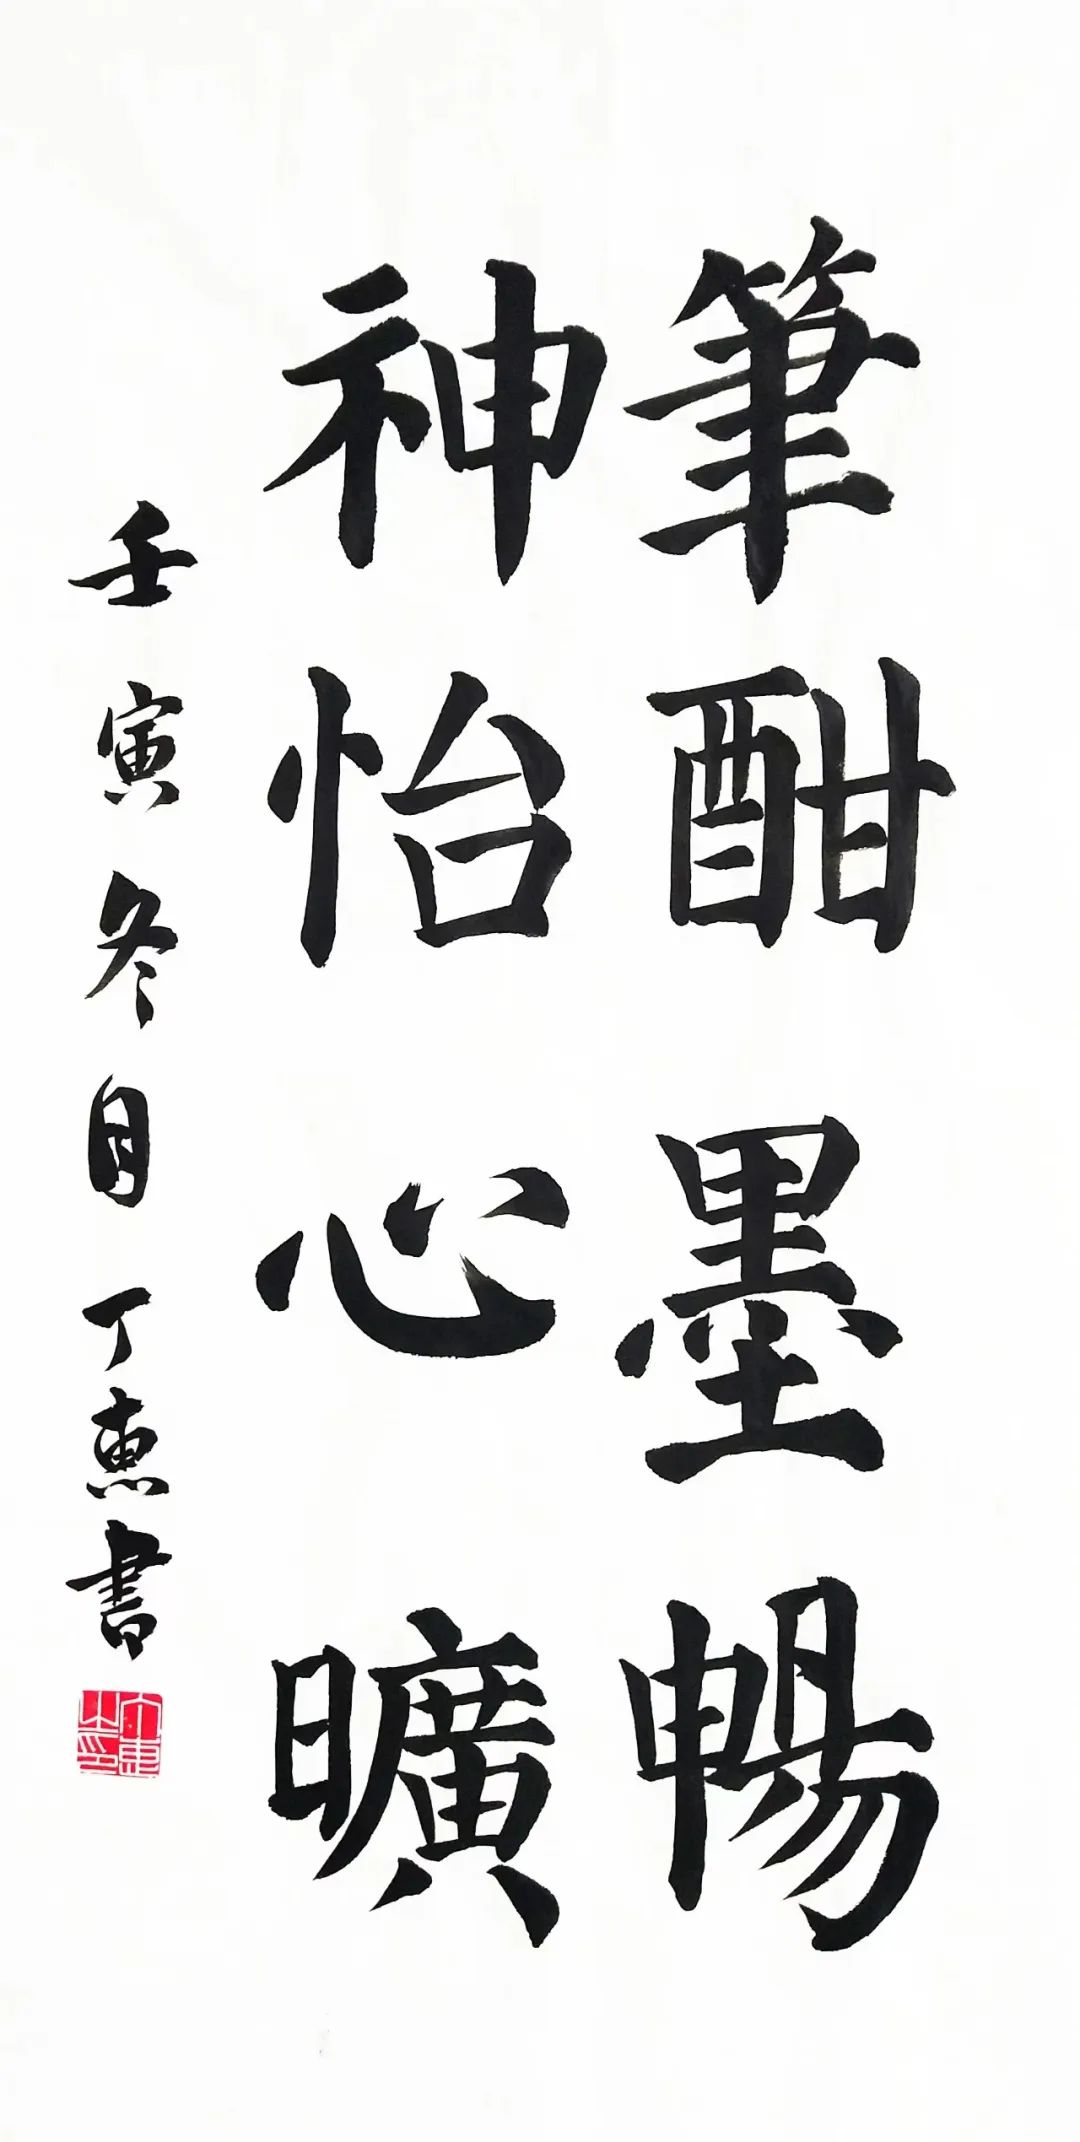 筆酣墨暢
神怡心曠
壬寅冬月丁惠書